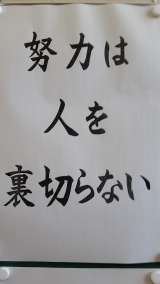 努力は
人を
裏切らない